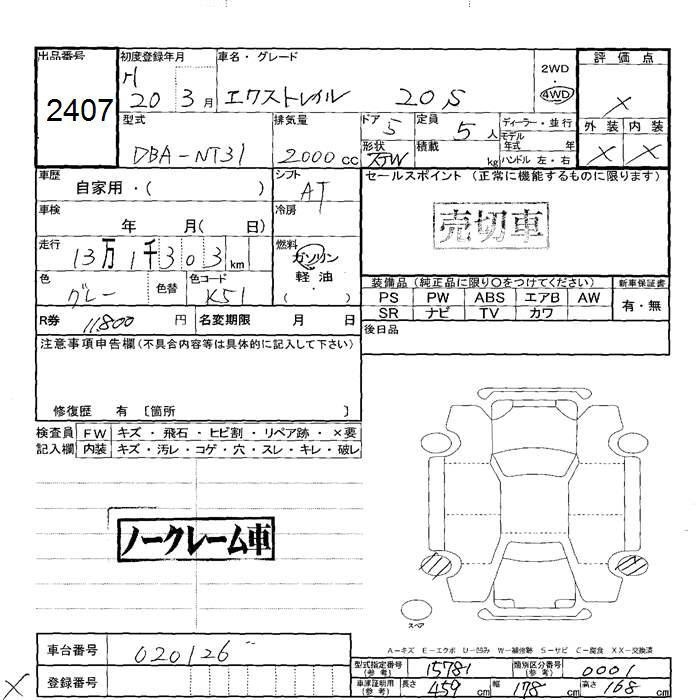 出品番号
2407
初度登録年月
H
20 3月
車名・グレード
エクストレイル 20S
2WD
4WD
評価点
X
外装 内装
X X
型式
DBA-NT31
排気量
2000cc
ドア
5
形状
定員
5人
積載
kg
ディーラー・並行
モデル
年式 年
ハンドル 左・右
車歴
自家用・( )
シフト
AT
セールスポイント(正常に機能するものに限ります)
売切車
車検
年 月( 日)
冷房
走行
13万1千303km
燃料
ガソリン
軽油
( )
色
グレー
色替
色コード
K51
装備品(純正品に限り○をつけてください)
新車保証書
PS PW ABS エアB AW
SR ナビ TV カワ
有・無
R券 11800円
名変期限 月 日
後日品
注意事項申告欄(不具合内容等は具体的に記入して下さい)
修復歴 有 〔箇所 〕
検査員
記入欄
FW キズ・飛石・ヒビ割・リペア跡・×要
内装 キズ・汚レ・コゲ・穴・スレ・キレ・破レ
ノークレーム車
スペア
A-キズ E-エクボ U-凹み W-補修跡 S-サビ C-腐食 XX-交換済
車台番号
020126
型式指定番号
(参考)
15781
類別区分番号
(参考)
0001
X
登録番号
車庫証明用
(参考)
長さ 459cm
幅 178cm
高さ 168cm